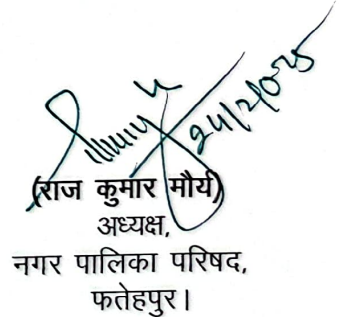 24/2/025
(राज कुमार मौर्य)
अध्यक्ष,
नगर पालिका परिषद,
फतेहपुर।